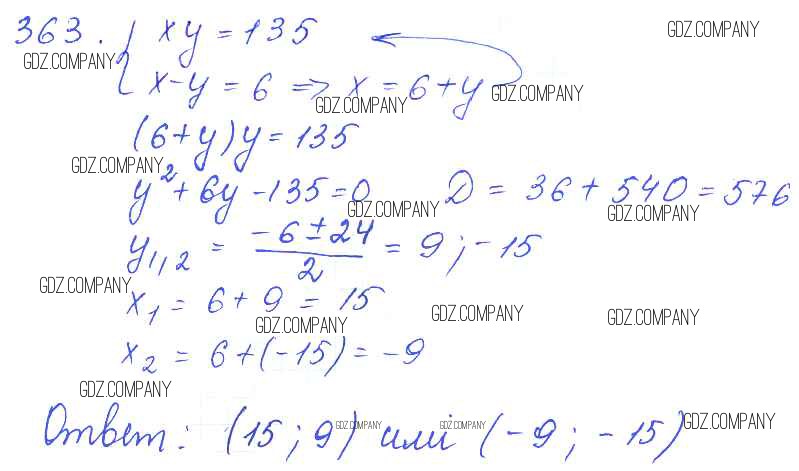 363. { xy = 135 GDZ.COMPANY
GDZ.COMPANY
x - y = 6 => x = 6 + y GDZ.COMPANY
GDZ.COMPANY
(6 + y) y = 135
GDZ.COMPANY
y² + 6y - 135 = 0 D = 36 + 540 = 576
GDZ.COMPANY GDZ.COMPANY
y₁,₂ = (-6 ± 24)/2 = 9 ; -15
GDZ.COMPANY
x₁ = 6 + 9 = 15
GDZ.COMPANY GDZ.COMPANY GDZ.COMPANY
x₂ = 6 + (-15) = -9
GDZ.COMPANY
Ответ: (15 ; 9) или (-9 ; -15) GDZ.COMPANY
GDZ.COMPANY GDZ.COMPANY